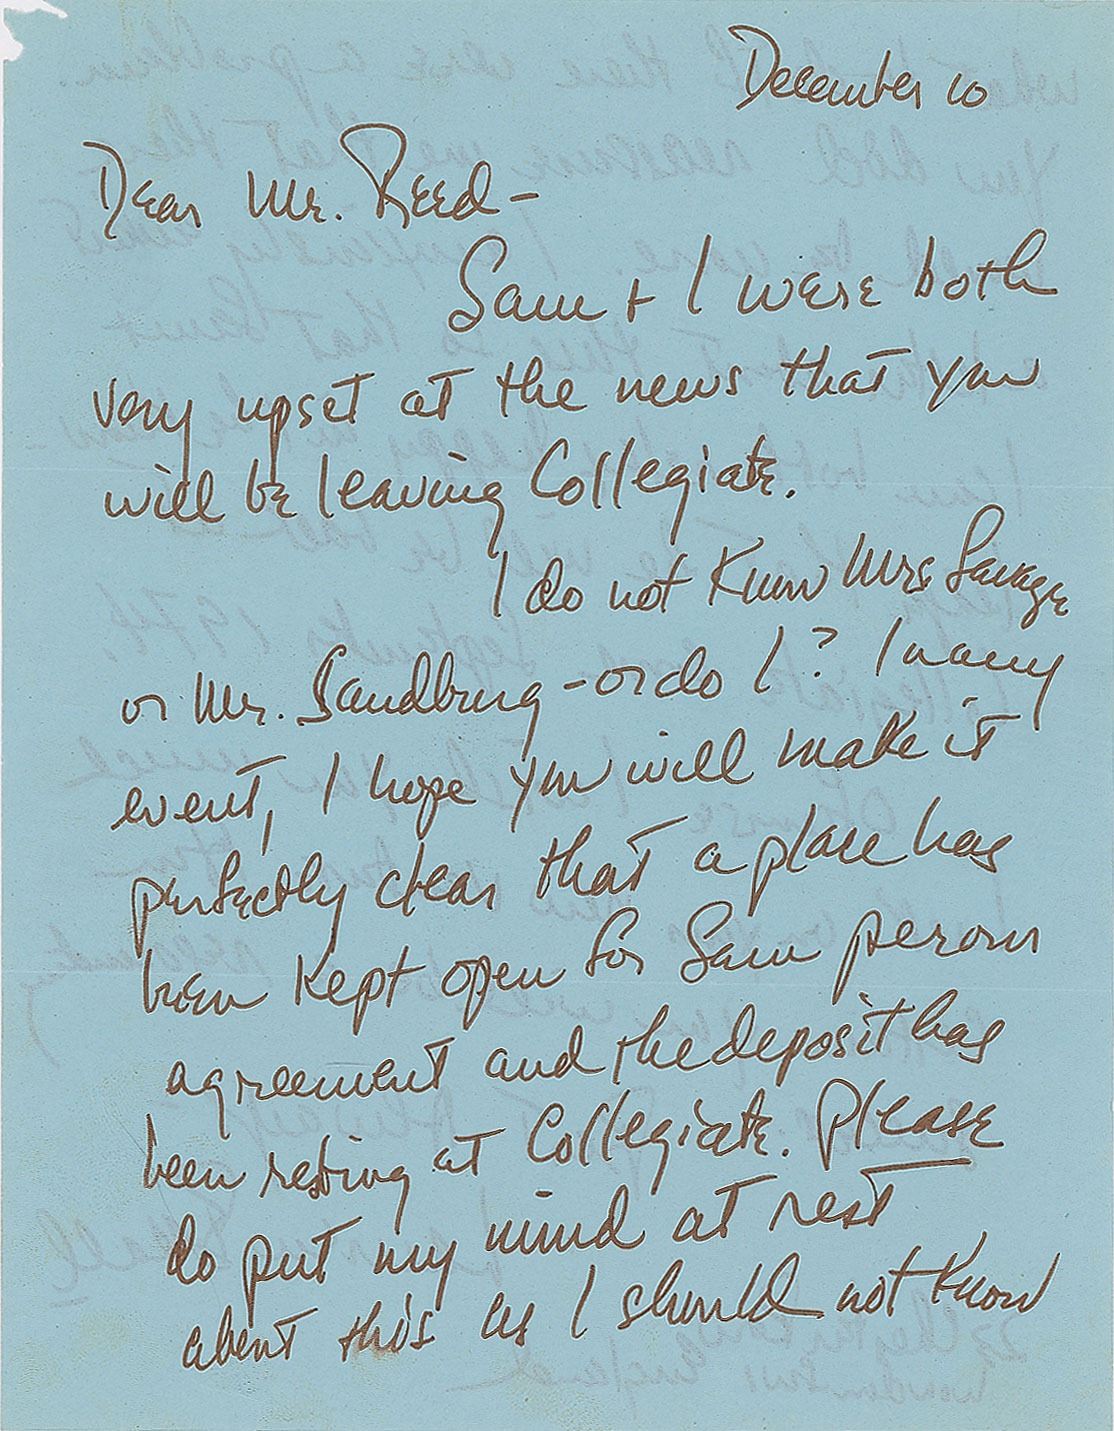 December 10
Dear Mr. Reed -
Sam + I were both
very upset at the news that you
will be leaving Collegiate.
I do not know Mrs Savage
or Mr. Sandburg - or do I? In any
event, I hope you will make it
perfectly clear that a place has
been kept open for Sam per our
agreement and the deposit has
been resting at Collegiate. Please
do put my mind at rest
about this as I should not know